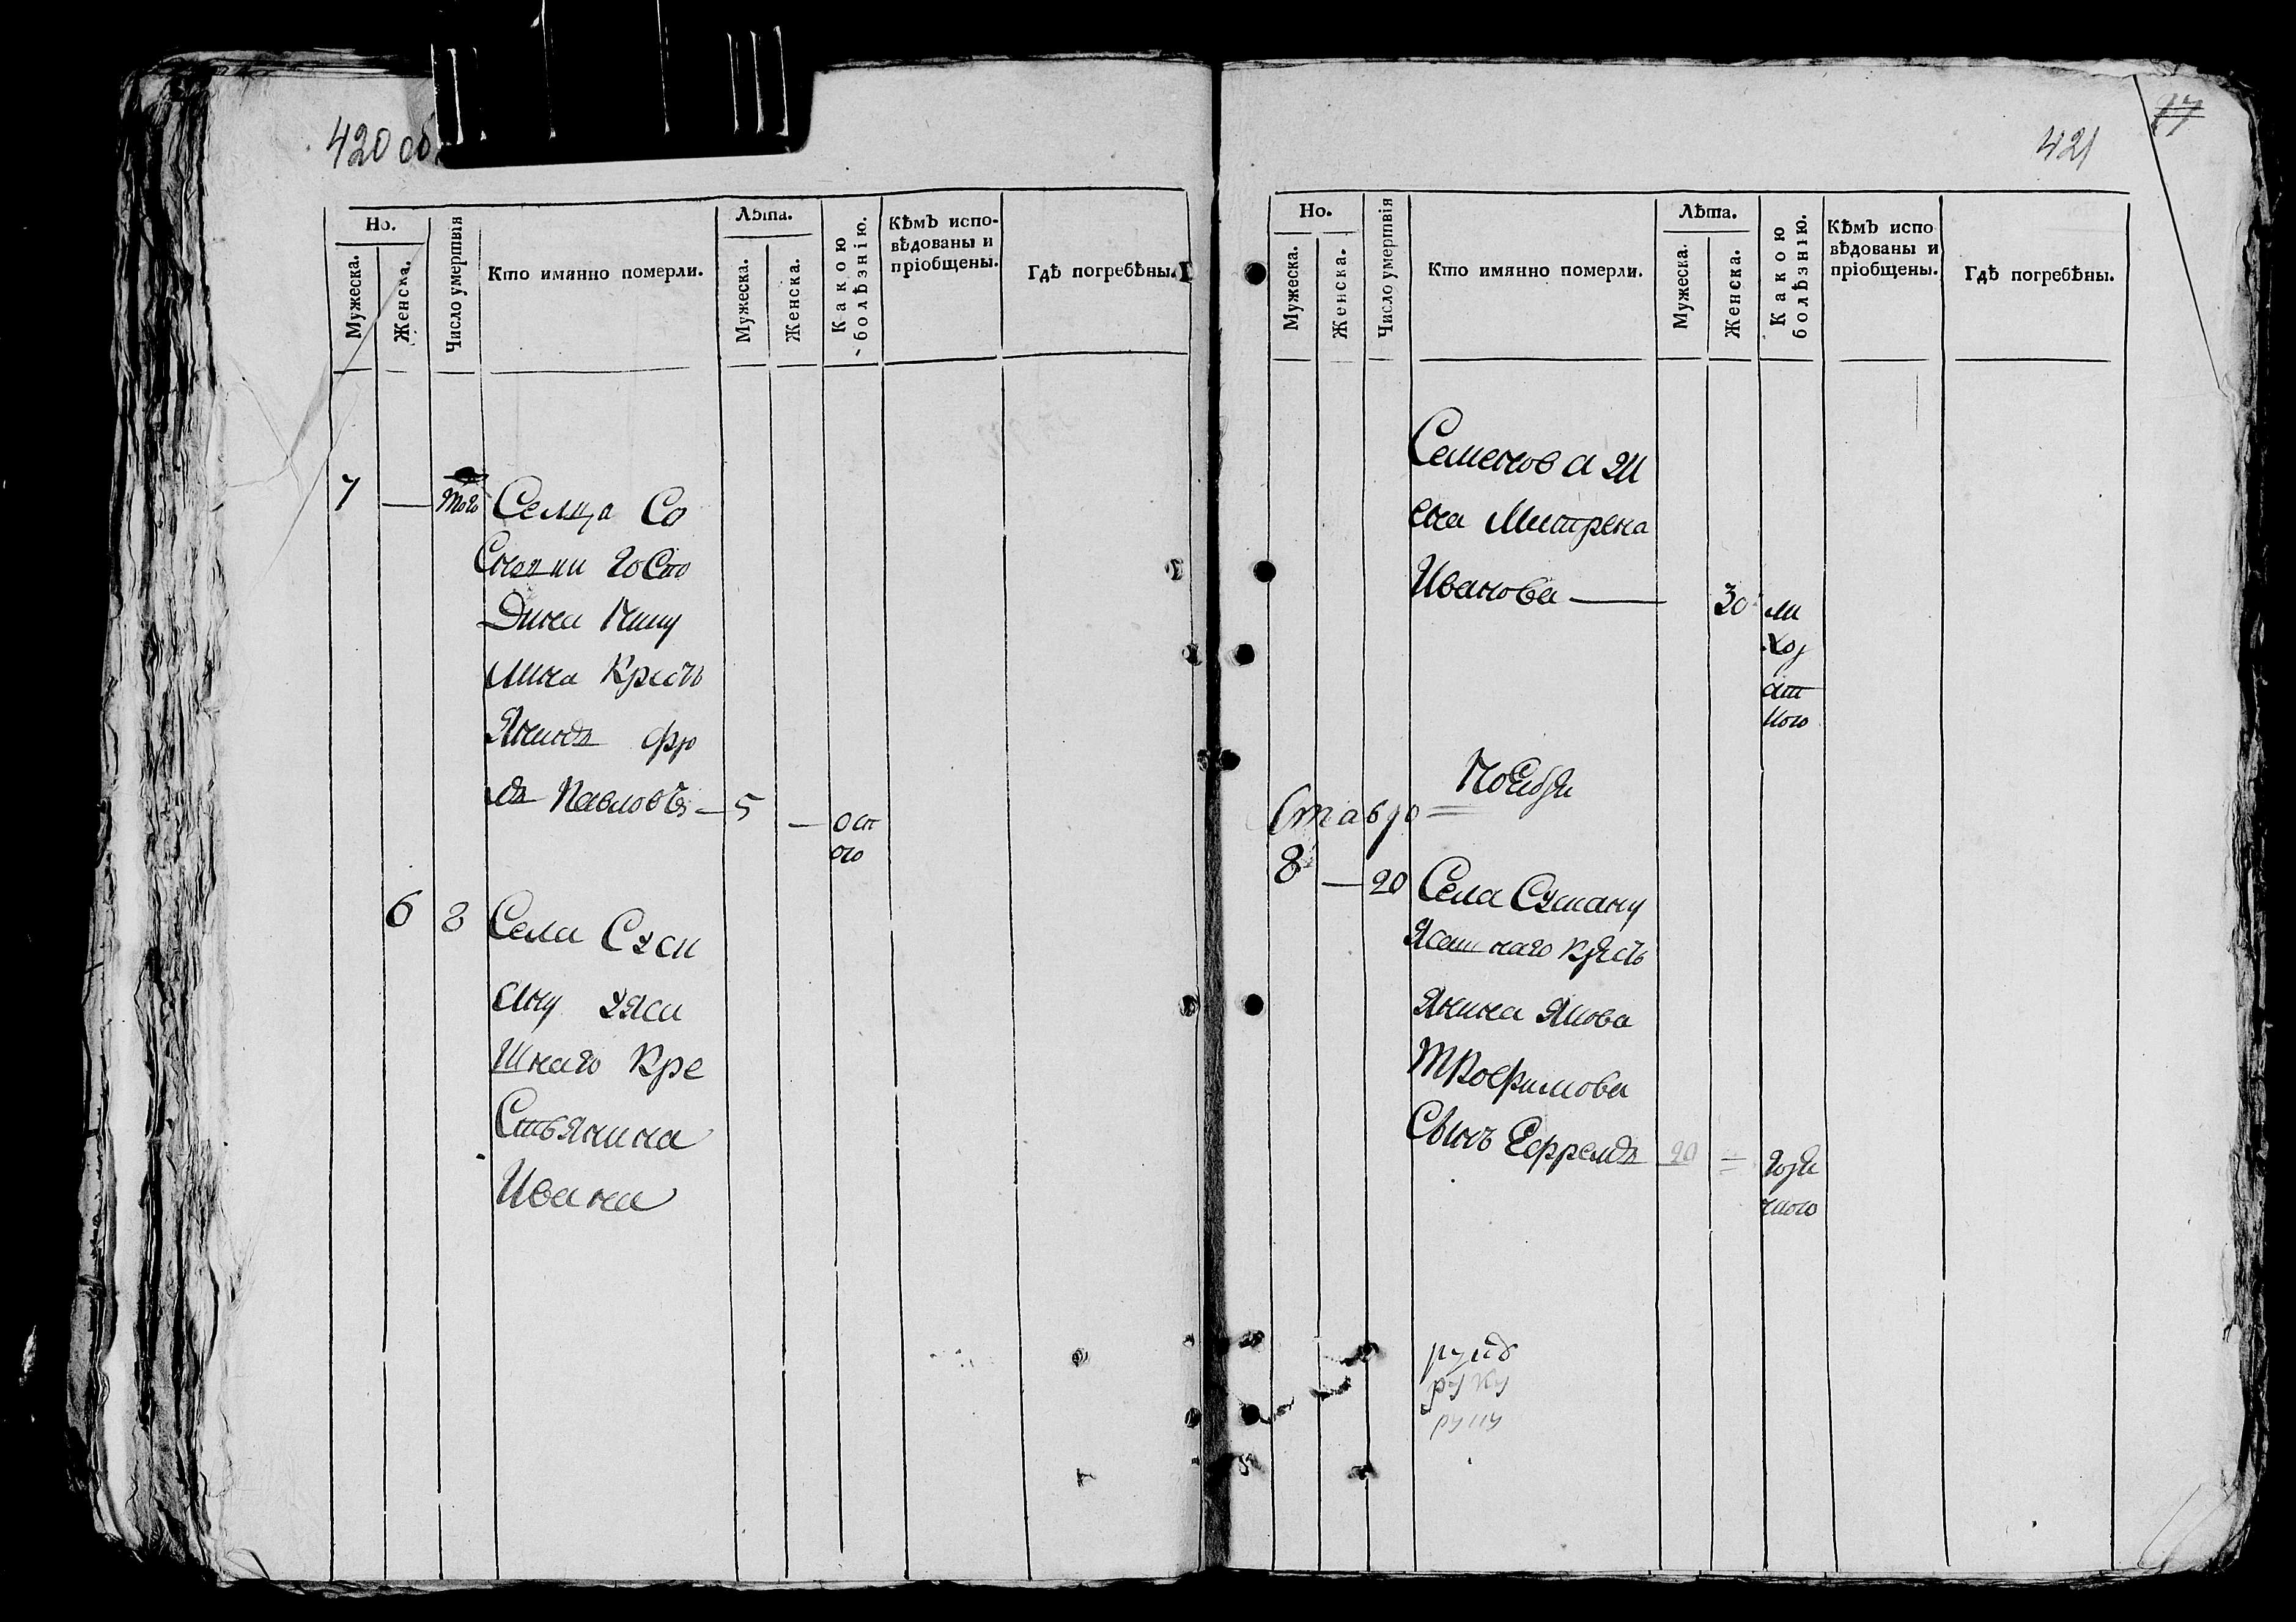 420 об.
Но.
Мужеска.
Женска.
Число умертвія
Кто имянно померли.
Лѣта.
Мужеска.
Женска.
Какою болѣзнію.
Кѣмъ испо-
вѣдованы и
пріобщены.
Гдѣ погребѣны.
7 — того Селца Со
госпо
дина
лина Кресть
янинъ
Павловъ — 5 — осп
ого
6 8 Села
Шнаго Кре
Стьянина
Ивана
421
17
Но.
Мужеска.
Женска.
Число умертвія
Кто имянно померли.
Лѣта.
Мужеска.
Женска.
Какою болѣзнію.
Кѣмъ испо
вѣдованы и
пріобщены.
Гдѣ погребѣны.
Семенова ж
ена Митрена
Иванова — 30 ли
хор
ат
ного
Ноебря
8 — 20 Села
Ясашнаго Кресть
янина
Трофимова
Сынъ 20 = горя
чкого